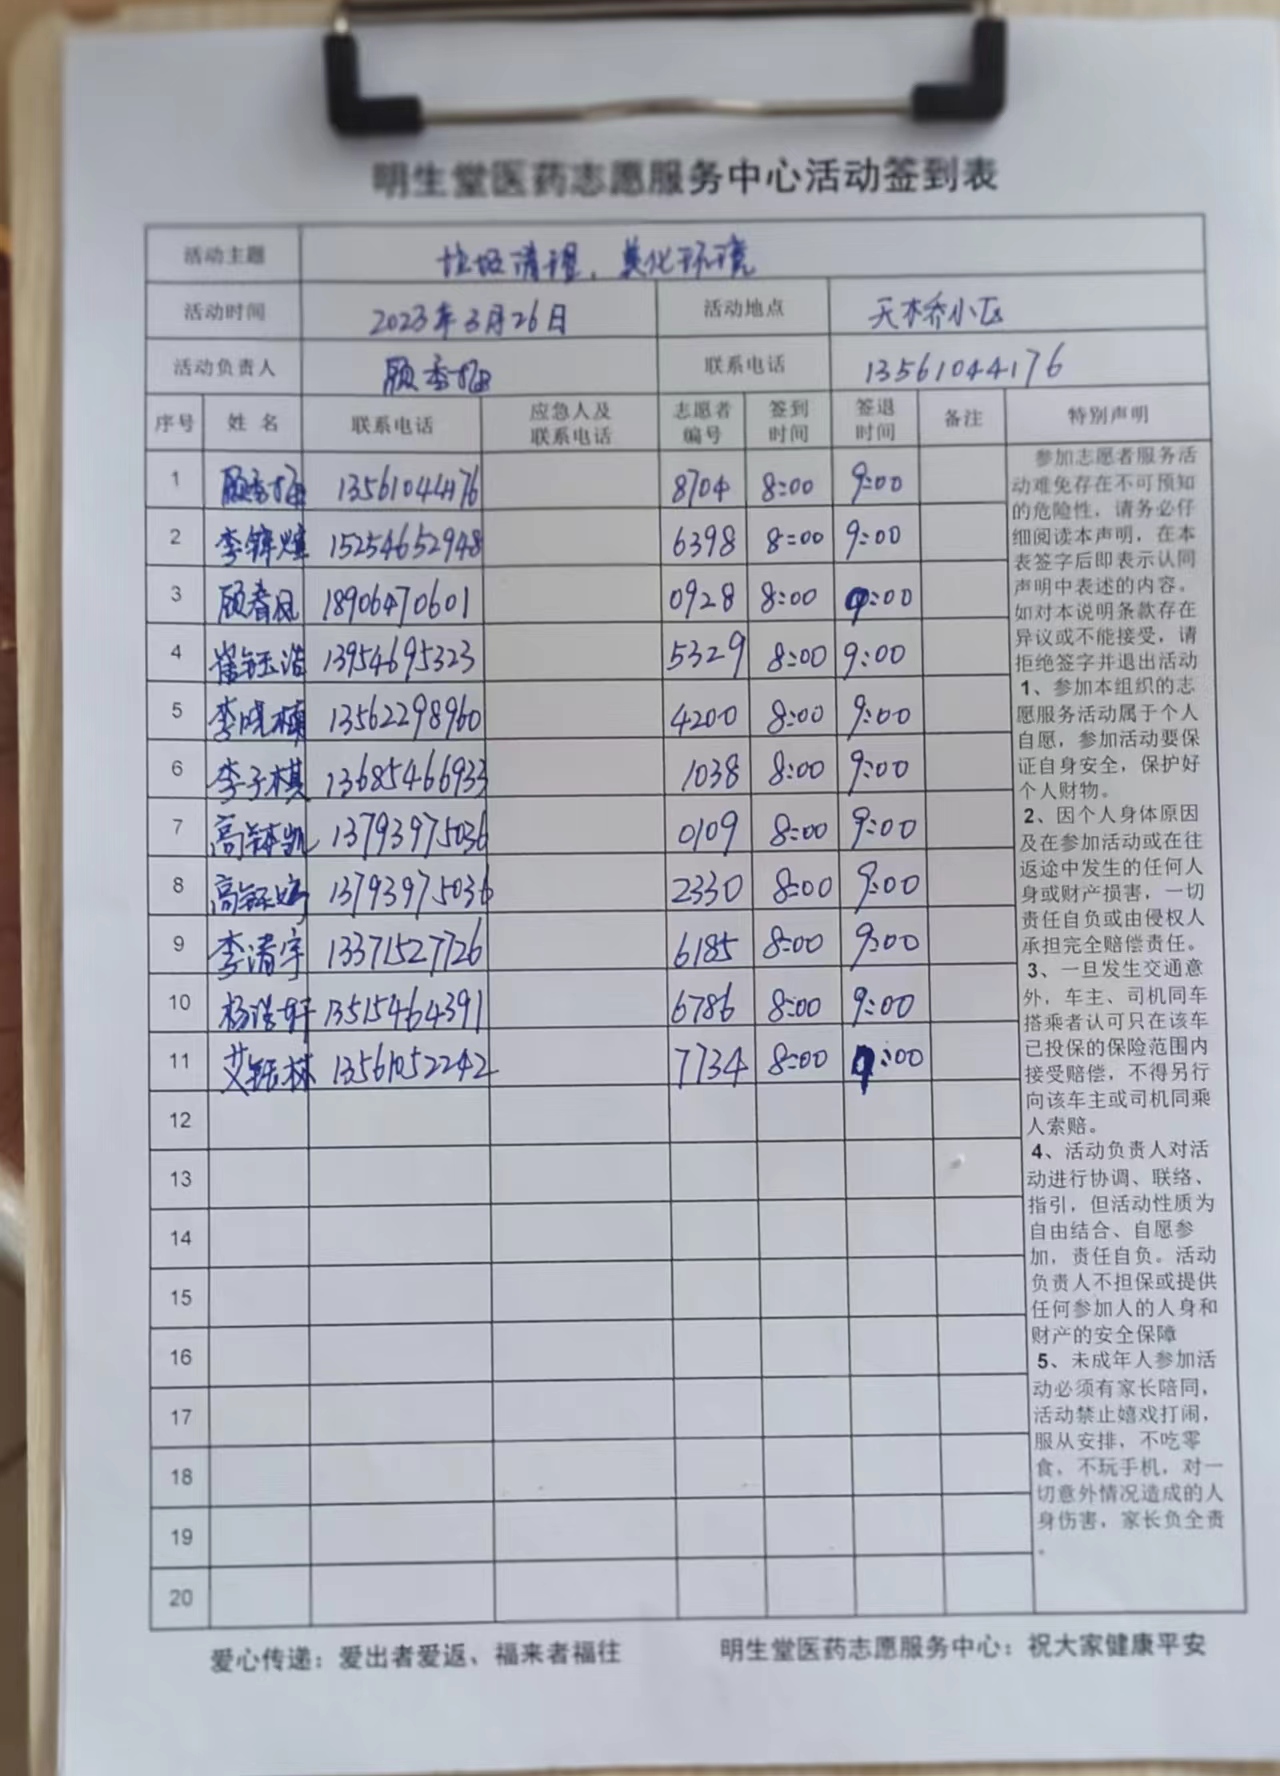 明生堂医药志愿服务中心活动签到表
活动主题 垃圾清理，美化环境
活动时间 2023年3月26日 活动地点 天桥小区
活动负责人 顾香梅 联系电话 13561044176
序号 姓名 联系电话 应急人及联系电话 志愿者编号 签到时间 签退时间 备注 特别声明
1 顾香梅 13561044176 8704 8:00 9:00
2 李锦煊 15254652948 6398 8:00 9:00
3 顾春风 18906470601 0928 8:00 9:00
4 崔钰浩 13954695323 5329 8:00 9:00
5 李晓楠 13562298960 4200 8:00 9:00
6 李子棋 13685466933 1038 8:00 9:00
7 高 凯 13793975036 0109 8:00 9:00
8 高钰 13793975036 2330 8:00 9:00
9 李清宇 13371527726 6185 8:00 9:00
10 杨浩轩 13515464391 6786 8:00 9:00
11 艾钰林 13561052242 7734 8:00 9:00
12
13
14
15
16
17
18
19
20
参加志愿者服务活
动难免存在不可预知
的危险性，请务必仔
细阅读本声明，在本
表签字后即表示认同
声明中表述的内容。
如对本说明条款存在
异议或不能接受，请
拒绝签字并退出活动
1、参加本组织的志
愿服务活动属于个人
自愿，参加活动要保
证自身安全，保护好
个人财物。
2、因个人身体原因
及在参加活动或在往
返途中发生的任何人
身或财产损害，一切
责任自负或由侵权人
承担完全赔偿责任。
3、一旦发生交通意
外，车主、司机同车
搭乘者认可只在该车
已投保的保险范围内
接受赔偿，不得另行
向该车主或司机同乘
人索赔。
4、活动负责人对活
动进行协调、联络、
指引，但活动性质为
自由结合、自愿参
加，责任自负。活动
负责人不担保或提供
任何参加人的人身和
财产的安全保障
5、未成年人参加活
动必须有家长陪同，
活动禁止嬉戏打闹，
服从安排，不吃零
食，不玩手机，对一
切意外情况造成的人
身伤害，家长负全责
。
爱心传递：爱出者爱返、福来者福往 明生堂医药志愿服务中心：祝大家健康平安